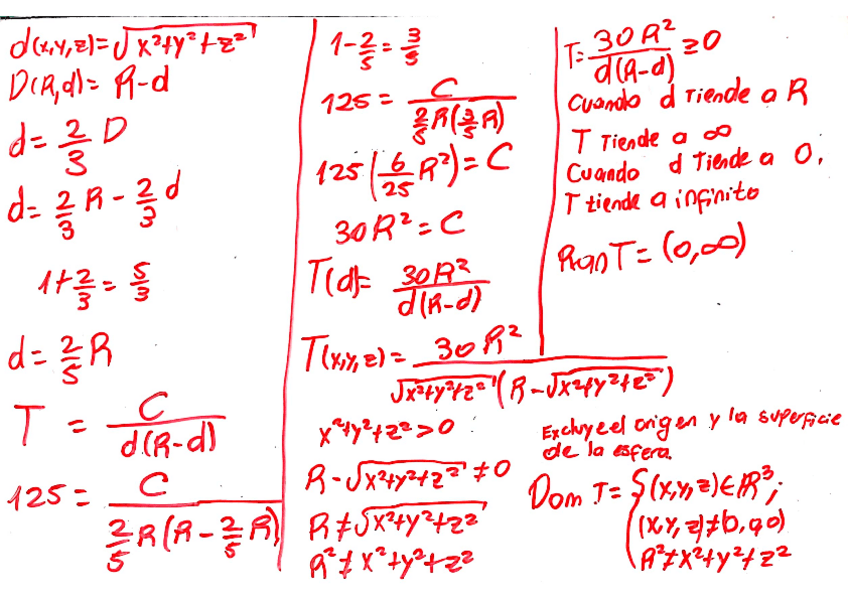 d(x,y,z)=√x²+y²+z²
D(R,d)= R-d
d= 2/3 D
d= 2/3 R - 2/3 d
1+2/3 = 5/3
d= 2/5 R
T = C/d(R-d)
125 = C/(2/5 R(R - 2/5 R))
1-2/5 = 3/5
125 = C/(2/5 R(3/5 R))
125(6/25 R²) = C
30R² = C
T(d)= 30R²/d(R-d)
T(x,y,z) = 30R²/(√x²+y²+z² (R-√x²+y²+z²))
x²+y²+z²>0
R-√x²+y²+z² ≠0
R≠√x²+y²+z²
R²≠x²+y²+z²
T= 30R²/d(R-d) ≥0
Cuando d tiende a R
T Tiende a ∞
Cuando d Tiende a 0,
T tiende a infinito
RanT= (0,∞)
Excluye el origen y la superficie
de la esfera.
Dom T= {(x,y,z)∈ℝ³;
(x,y,z)≠(0,0,0)
R²≠x²+y²+z²